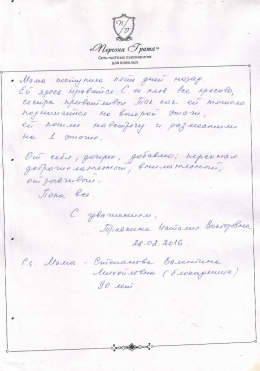 «Персона Грата»
Сеть частных пансионатов
для пожилых
Мама поступила пять дней назад
Ей здесь нравится С её слов все красиво,
сестра приветлива Так как ей тяжело
подниматься на второй этаж,
ей пошли навстречу и разместили
на 1 этаже.
От себя, дочери, добавлю: персонал
доброжелательный, внимательный,
отзывчивый.
Пока все.
С уважением,
Наталия Викторовна
28.02.2016.
P.s. Мама - Степанова Валентина
Михайловна (блокадница)
90 лет.